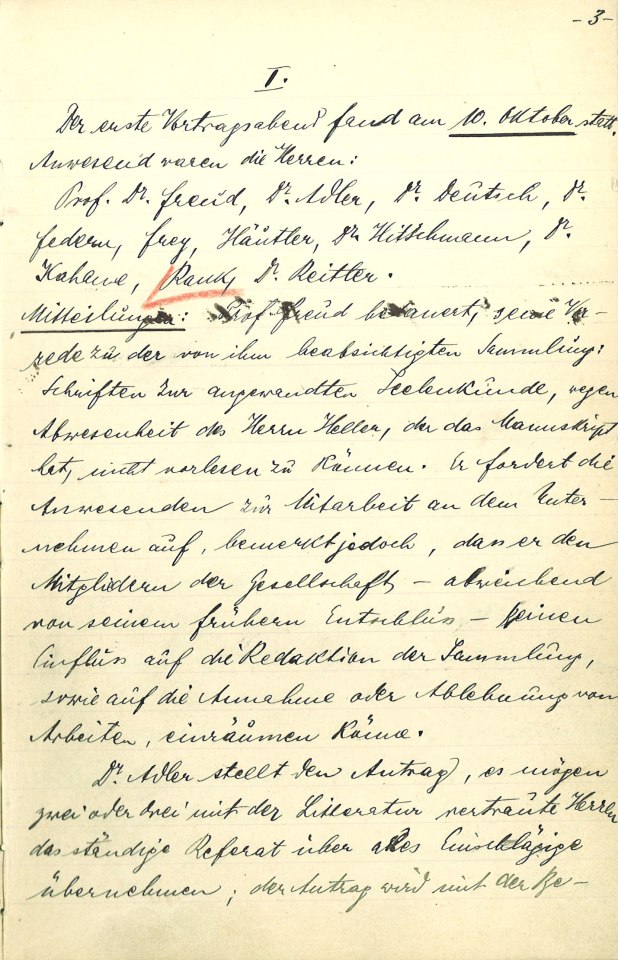 -3-
I.
Der erste Vortragsabend fand am 10. Oktober statt.
Anwesend waren die Herren:
Prof. Dr. Freud, Dr. Adler, Dr. Deutsch, Dr.
Federn, Frey, Häutler, Dr. Hitschmann, Dr.
Kahane, Rank, Dr. Reitler.
Mitteilungen: Prof. Freud bedauert, seine Vor-
rede zu der von ihm beabsichtigten Sammlung:
Schriften zur angewandten Seelenkunde, wegen
Abwesenheit des Herrn Heller, der das Manuskript
hat, nicht vorlesen zu können. Er fordert die
Anwesenden zur Mitarbeit an dem Unter-
nehmen auf, bemerkt jedoch, dass er den
Mitgliedern der Gesellschaft – abweichend
von seinem frühern Entschluss – keinen
Einfluss auf die Redaktion der Sammlung,
sowie auf die Annahme oder Ablehnung von
Arbeiten, einräumen könne.
Dr. Adler stellt den Antrag, es mögen
zwei oder drei mit der Litteratur vertraute Herren
das ständige Referat über alles Einschlägige
übernehmen; der Antrag wird mit der Be-